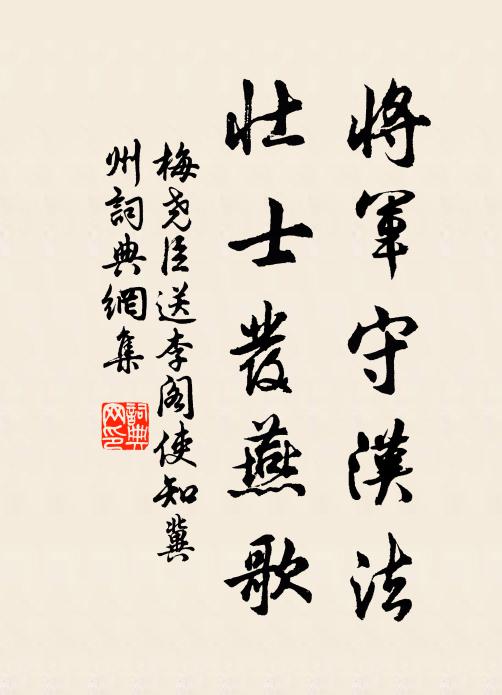 將軍守漢法
壯士發燕歌
梅堯臣送李閣使知冀
州詞典網集
詞典
网印